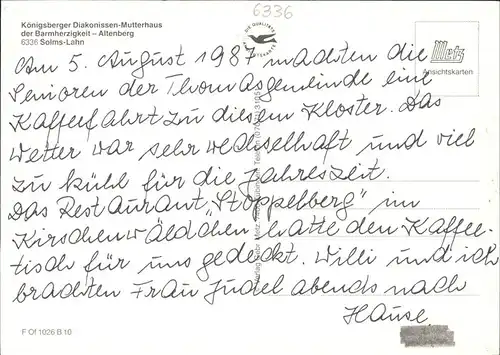 6336
Königsberger Diakonissen-Mutterhaus
der Barmherzigkeit – Altenberg
6336 Solms-Lahn
DIE QUALITÄTS
Metz
Ansichtskarten
Am 5. August 1987 machten die
Senioren der Thomasgemeinde eine
Kaffeefahrt zu diesem Kloster. Das
Wetter war sehr wechselhaft und viel
zu kühl für die Jahreszeit.
Das Restaurant „Stoppelberg" im
Kirschenwäldchen hatte den Kaffee-
tisch für uns gedeckt. Willi und ich
brachten Frau Judel abends nach
Hause.
F Of 1026 B 10